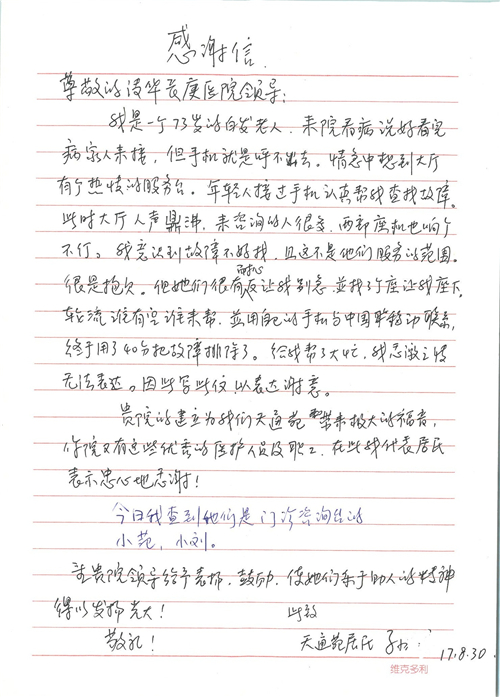 感谢信
尊敬的清华长庚医院领导:
我是一个73岁的白发老人,来院看病说好看完
病家人来接,但手机就是呼不出去。情急中想到大厅
有个热情的服务台。年轻人接过手机认真帮我查找故障。
此时大厅人声鼎沸,来咨询的人很多,两部座机也响个
不停。我意识到故障不好找,且这不是他们服务的范围。
很是抱欠。但她们很有耐心反让我别急,並找了个座让我座下。
轮流谁有空谁来帮,並用自己的手机与中国移动联系,
终于用了40分把故障排除了。给我帮了大忙,我感激之情
无法表达。因此写此信,以表达谢意。
贵院的建立为我们天通苑带来极大的福音,
你院又有这些优秀的医护人员及职工,在此我代表居民
表示忠心地感谢!
今日我查到他们是门诊咨询台的
小范,小刘。
望贵院领导给予表扬,鼓励,使她们乐于助人的精神
得以发扬光大!
此致
敬礼!
天通苑居民
17.8.30
维克多利